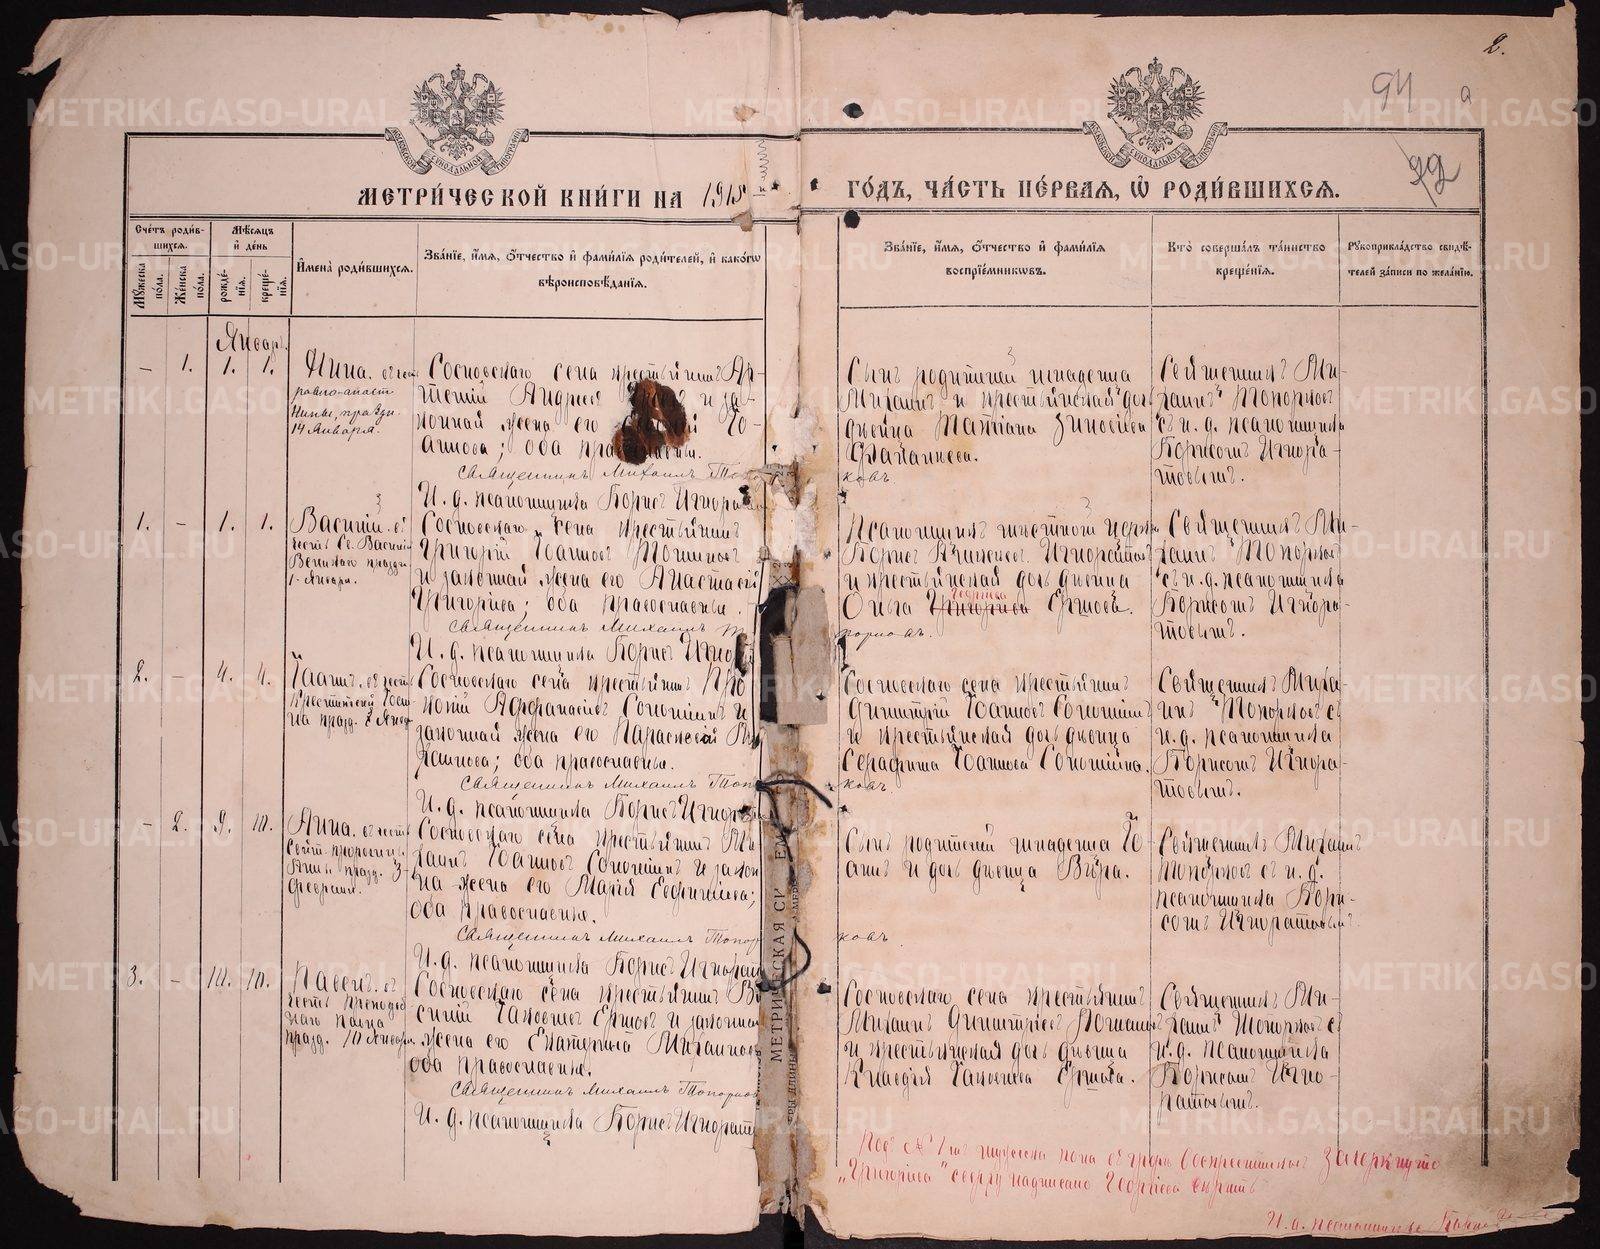 2.
94 а
92
МЕТРИ́ЧЕСКОЙ КНИ́ГИ НА 1915
ГО́ДЪ, ЧА́СТЬ ПЕ́РВАЯ, Ѡ҆ РОДИ́ВШИХСЯ.
Сче́тъ роди́в-
шихся.
Мѣ́сяцъ
и҆ де́нь
Му́жеска
по́ла.
Же́нска
по́ла.
рожде́-
нїя.
креще́-
нїя.
И҆мена̀ роди́вшихся.
Зва́нїе, и҆́мя, ѻ҆́тчество и҆ фами́лїя роди́телей, и҆ како́гѡ
вѣроисповѣ́данїя.
Зва́нїе, и҆́мя, ѻ҆́тчество и҆ фами́лїя
воспрїе́мниковъ.
Кто̀ соверша́лъ та́инство
креще́нїя.
Рꙋкоприкла́дство свидѣ́-
телей за́писи по жела́нїю.
Январь.
– 1. 1. 1.
Нина. въ чест
равно-апост
Нины, празд.
14 Января.
Сосновскаго села крестьянинъ Ар-
темій Андреев и за-
конная жена его Іо-
аннова; оба православны.
Священникъ Михаилъ Топо
И. д. псаломщика Борисъ Игнорат
Сынъ родителей младенца
Михаилъ и крестьянская дочь
девица Татіана Зиновіева
ковъ.
Священникъ Ми-
хаилъ Топорковъ
съ и. д. псаломщика
Борисомъ Игнора-
товымъ.
1. – 1. 1.
Василій. въ
честь Св. Василія
Великаго празд.
1 Января.
Сосновскаго села крестьянинъ
Григорій Іоанновъ
и законная жена его Анастасія
Григоріева; оба православны.
Священникъ Михаилъ То
И. д. псаломщика Борисъ Игно
Псаломщикъ местной церкви
Борисъ Игноратовъ
и крестьянская дочь девица
Георгіева
Ольга Григоріева Ершова.
порковъ.
Священникъ Ми-
хаилъ Топорковъ
съ и. д. псаломщика
Борисомъ Игнора-
товымъ.
2. – 4. 4.
Іоаннъ. въ честь
Крестителя Іоан-
на празд. 7 Январ
Сосновскаго села крестьянинъ Про
копій Афанасіевъ Сополкинъ и
законная жена его Параскева
оба православны.
Священникъ Михаилъ Топор
И. д. псаломщика Борисъ Игнора
Сосновскаго села крестьянинъ
Димитрій Іоанновъ
и крестьянская дочь девица
Серафима Іоаннова
ковъ
Священникъ Миха-
илъ Топорковъ съ
и. д. псаломщика
Борисомъ Игнора-
товымъ.
– 2. 9. 10.
Анна. въ честь
Свят. пророчицы
Анны празд. 3-
февраля.
Сосновскаго села крестьянинъ Ми-
хаилъ Іоанновъ и закон
ная жена его Марія Евфиміева;
оба православны.
Священникъ Михаилъ Топор
И. д. псаломщика Борисъ Игнорат
Сынъ родителей младенца Іо-
аннъ и дочь девица Вера.
ковъ
Священникъ Михаилъ
Топорковъ съ и. д.
псаломщика Бори-
сомъ Игноратовымъ.
3. – 10. 10.
Павелъ. въ
честь преподоб
наго Павла
празд. 10 Января.
Сосновскаго села крестьянинъ Ва
силій Іаковлевъ Ершовъ и законная
жена его Екатерина Михаилова
оба православны.
Священникъ Михаилъ Топорков
И. д. псаломщика Борисъ Игнорат
Сосновскаго села крестьянинъ
Михаилъ Димитріевъ
и крестьянская дочь девица
Клавдія Іаковлева Ершова.
Священникъ Ми-
хаилъ Топорковъ съ
и. д. псаломщика
Борисомъ Игно-
ратовымъ.
Подъ № 1 м мужеска пола въ графе воспріемниковъ зачеркнуто
„Григоріева" сверху надписано Георгіева верить
И. д. псаломщика Борисъ
METRIKI.GASO-URAL.RU